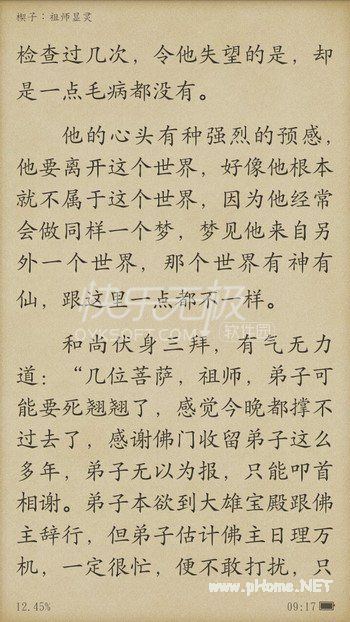 楔子：祖师显灵
检查过几次，令他失望的是，却
是一点毛病都没有。
他的心头有种强烈的预感，
他要离开这个世界，好像他根本
就不属于这个世界，因为他经常
会做同样一个梦，梦见他来自另
外一个世界，那个世界有神有
仙，跟这里一点都不一样。
快乐无极
OYKSOFT.COM 软件园
和尚伏身三拜，有气无力
道：“几位菩萨，祖师，弟子可
能要死翘翘了，感觉今晚都撑不
过去了，感谢佛门收留弟子这么
多年，弟子无以为报，只能叩首
相谢。弟子本欲到大雄宝殿跟佛
主辞行，但弟子估计佛主日理万
机，一定很忙，便不敢打扰，只
www.pHome.NET
12.45% 09:17